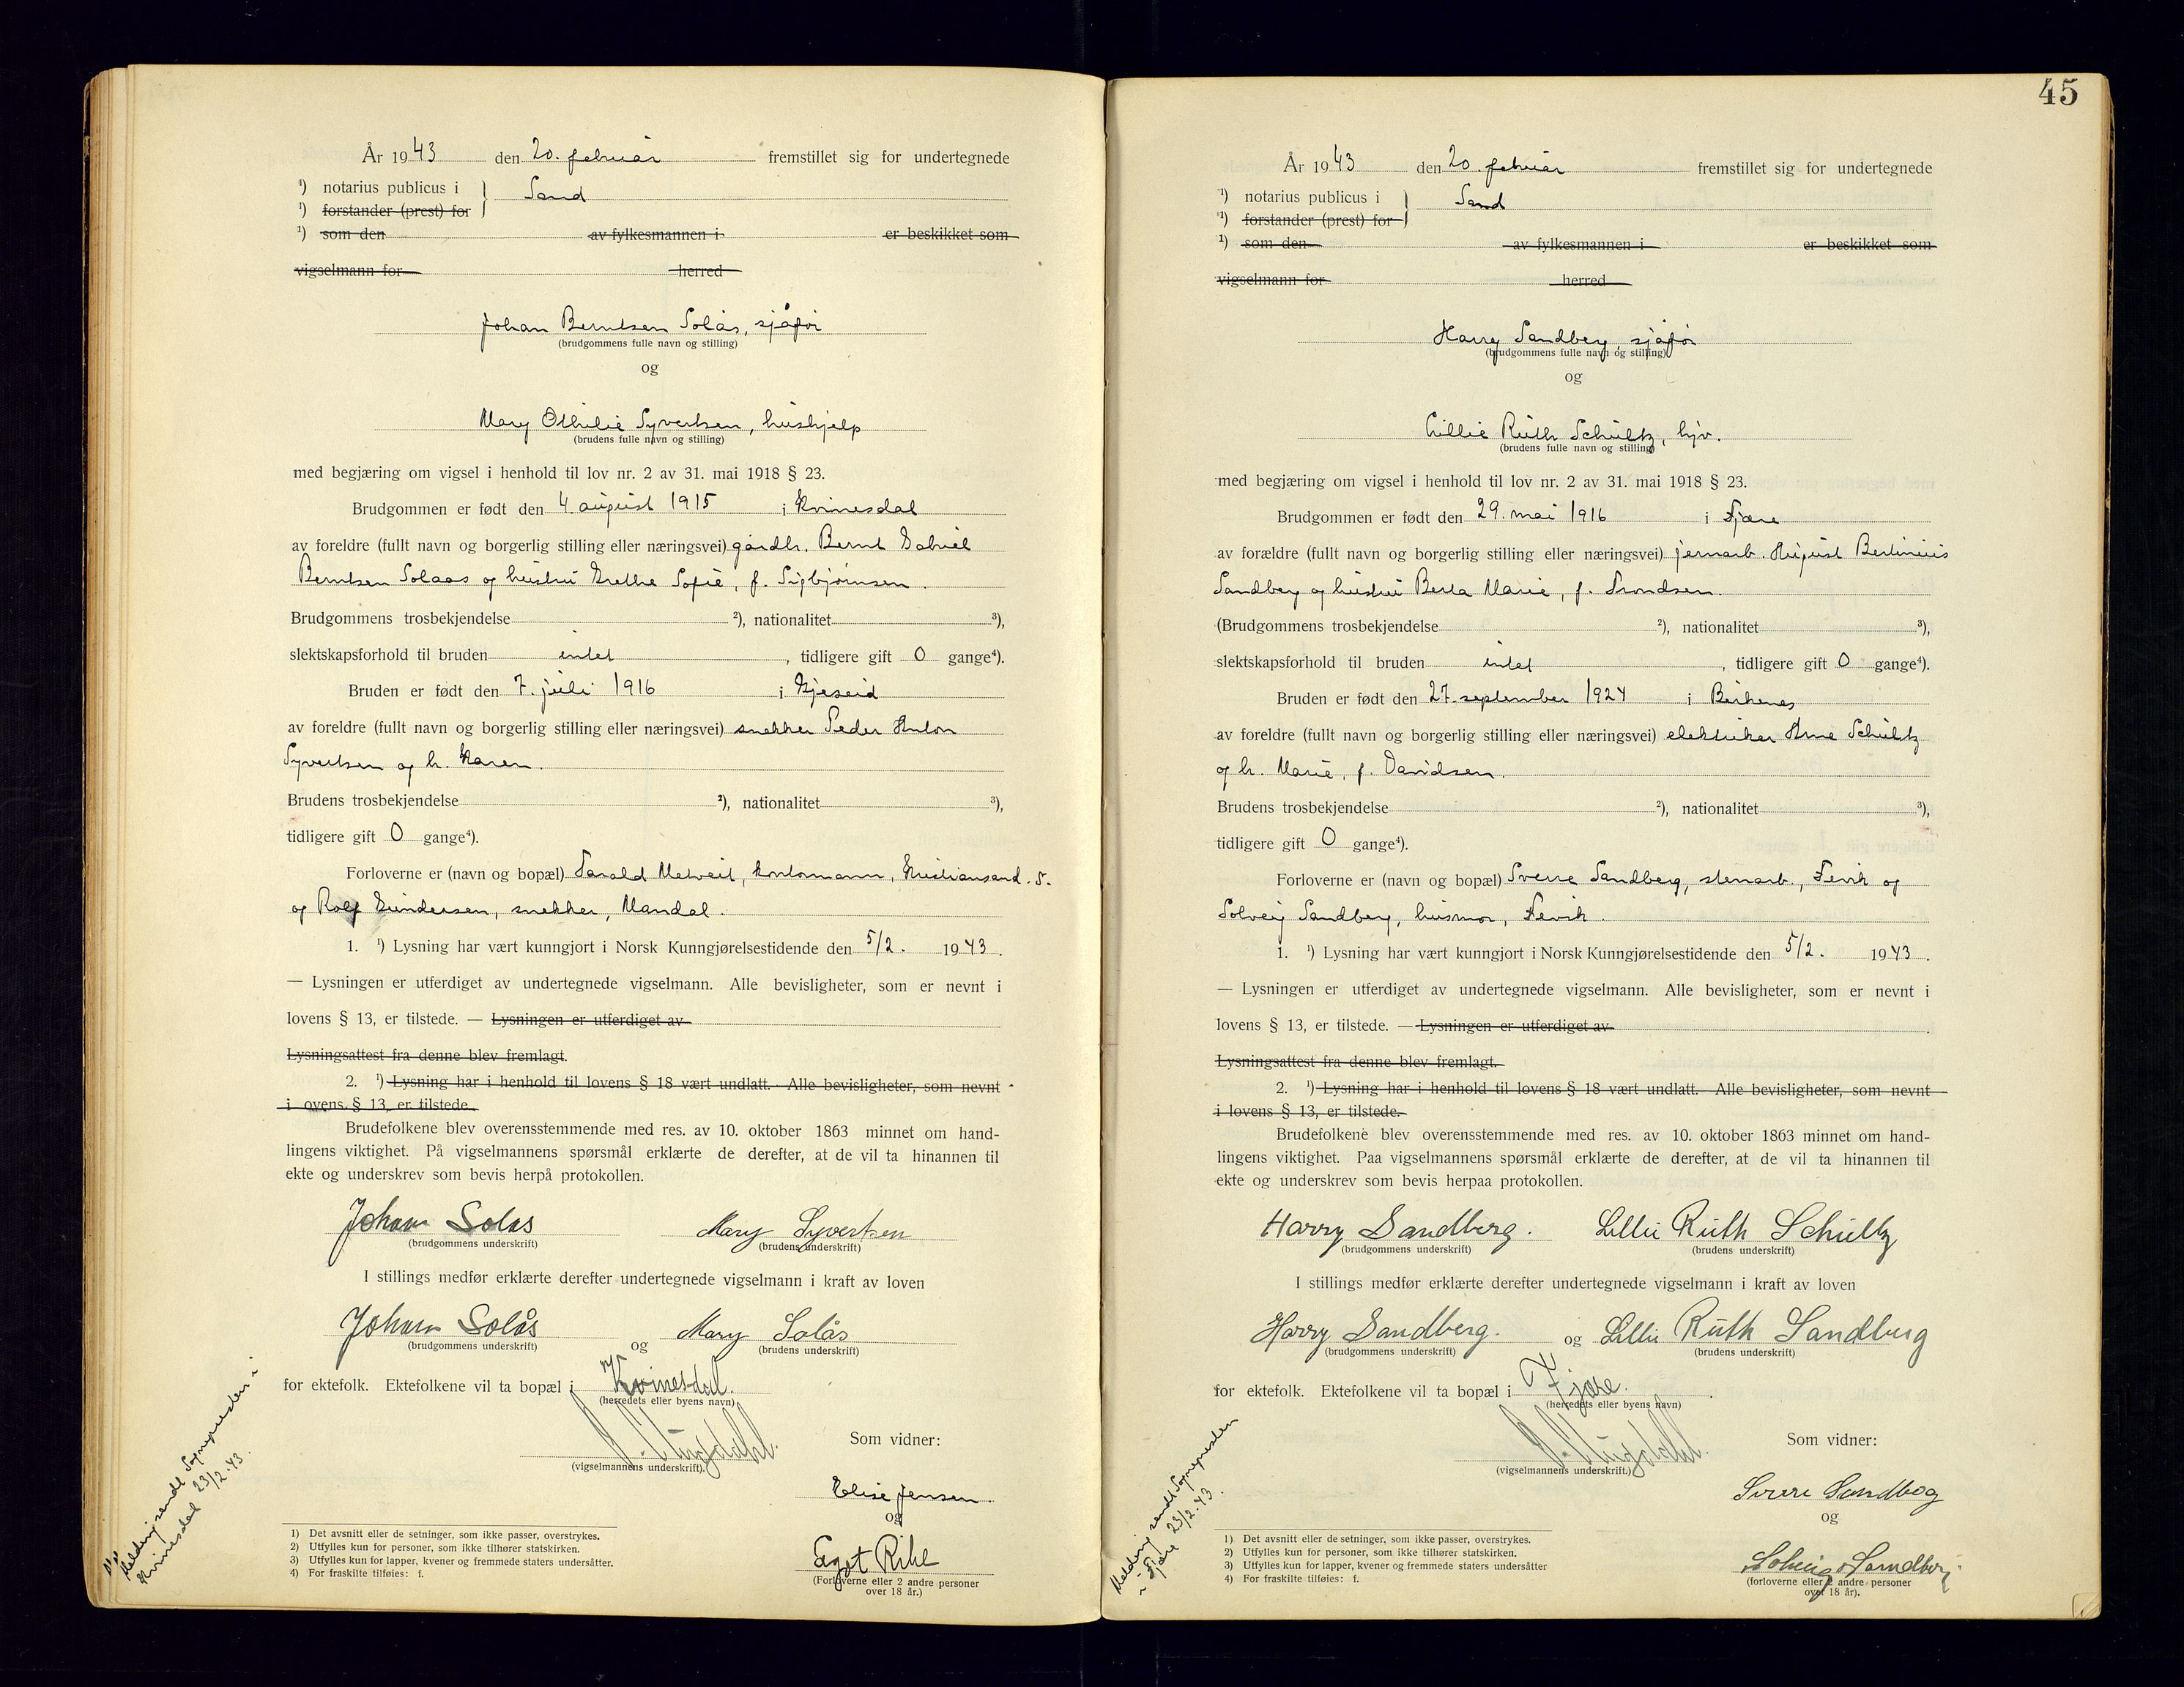 År 1943 den 20. februar fremstillet sig for undertegnede
¹) notarius publicus i } Sand
¹) forstander (prest) for
¹) som den av fylkesmannen i er beskikket som
vigselmann for herred
Johan Berntsen Solås, sjåfør
(brudgommens fulle navn og stilling)
og
Mary Othilie Syvertsen, hushjelp
(brudens fulle navn og stilling)
med begjæring om vigsel i henhold til lov nr. 2 av 31. mai 1918 § 23.
Brudgommen er født den 4. august 1915 i Kvinesdal
av foreldre (fullt navn og borgerlig stilling eller næringsvei) gårdbr. Bernt Gabriel
Berntsen Solaas og hustru Grethe Sofie, f. Sigbjørnsen.
Brudgommens trosbekjendelse ²), nationalitet ³),
slektskapsforhold til bruden intet, tidligere gift 0 gange⁴).
Bruden er født den 7. juli 1916 i Gjeseid
av foreldre (fullt navn og borgerlig stilling eller næringsvei) snekker Peder Anton
Syvertsen og h. Karen.
Brudens trosbekjendelse ²), nationalitet ³),
tidligere gift 0 gange⁴).
Forloverne er (navn og bopæl) Harald kontormann, Kristiansand. S.
og Rolf Gundersen, snekker, Mandal.
1. ¹) Lysning har vært kunngjort i Norsk Kunngjørelsestidende den 5/2. 1943.
— Lysningen er utferdiget av undertegnede vigselmann. Alle bevisligheter, som er nevnt i
lovens § 13, er tilstede. — Lysningen er utferdiget av
Lysningsattest fra denne blev fremlagt.
2. ¹) Lysning har i henhold til lovens § 18 vært undlatt. Alle bevisligheter, som nevnt
i ovens § 13, er tilstede.
Brudefolkene blev overensstemmende med res. av 10. oktober 1863 minnet om hand-
lingens viktighet. På vigselmannens spørsmål erklærte de derefter, at de vil ta hinannen til
ekte og underskrev som bevis herpå protokollen.
Johan Solas Mary Syvertsen
(brudgommens underskrift) (brudens underskrift)
I stillings medfør erklærte derefter undertegnede vigselmann i kraft av loven
Johan Solås og Mary Solås
(brudgommens underskrift) (brudens underskrift)
for ektefolk. Ektefolkene vil ta bopæl i Kvinesdal.
(herredets eller byens navn)
(vigselmannens underskrift).
Som vidner:
Elise Jensen.
og
(Forloverne eller 2 andre personer
over 18 år.)
Melding sendt Sognepresten i
Kvinesdal 23/2.43.
1) Det avsnitt eller de setninger, som ikke passer, overstrykes.
2) Utfylles kun for personer, som ikke tilhører statskirken.
3) Utfylles kun for lapper, kvener og fremmede staters undersåtter.
4) For fraskilte tilføies: f.
45
År 1943 den 20. februar fremstillet sig for undertegnede
¹) notarius publicus i } Sand
¹) forstander (prest) for
¹) som den av fylkesmannen i er beskikket som
vigselmann for herred
Harry Sandberg, sjåfør
(brudgommens fulle navn og stilling)
og
Lillie Ruth Schultz, hjv.
(brudens fulle navn og stilling)
med begjæring om vigsel i henhold til lov nr. 2 av 31. mai 1918 § 23.
Brudgommen er født den 29. mai 1916 i Fjære
av forældre (fullt navn og borgerlig stilling eller næringsvei) jernarb. August Bertinius
Sandberg og hustru Berta Marie, f. Trondsen.
(Brudgommens trosbekjendelse ²), nationalitet ³),
slektskapsforhold til bruden intet, tidligere gift 0 gange⁴).
Bruden er født den 27. september 1924 i Birkenes
av foreldre (fullt navn og borgerlig stilling eller næringsvei) elektriker Arne Schultz
og h. Marie, f. Davidsen.
Brudens trosbekjendelse ²), nationalitet ³),
tidligere gift 0 gange⁴).
Forloverne er (navn og bopæl) Sverre Sandberg, stenarb., Fevik og
Solveig Sandberg, husmor, Fevik.
1. ¹) Lysning har vært kunngjort i Norsk Kunngjørelsestidende den 5/2. 1943.
— Lysningen er utferdiget av undertegnede vigselmann. Alle bevisligheter, som er nevnt i
lovens § 13, er tilstede. — Lysningen er utferdiget av .
Lysningsattest fra denne blev fremlagt.
2. ¹) Lysning har i henhold til lovens § 18 vært undlatt. Alle bevisligheter, som nevnt
i lovens § 13, er tilstede.
Brudefolkene blev overensstemmende med res. av 10. oktober 1863 minnet om hand-
lingens viktighet. Paa vigselmannens spørsmål erklærte de derefter, at de vil ta hinannen til
ekte og underskrev som bevis herpaa protokollen.
Harry Sandberg. Lillie Ruth Schultz
(brudgommens underskrift) (brudens underskrift)
I stillings medfør erklærte derefter undertegnede vigselmann i kraft av loven
Harry Sandberg. og Lillie Ruth Sandberg
(brudgommens underskrift) (brudens underskrift)
for ektefolk. Ektefolkene vil ta bopæl i Fjære.
(herredets eller byens navn)
(vigselmannens underskrift.)
Som vidner:
Sverre Sandberg
og
Solveig Sandberg
(forloverne eller 2 andre personer
over 18 år).
Melding sendt Sognepresten
i Fjære 23/2.43.
1) Det avsnitt eller de setninger, som ikke passer, overstrykes.
2) Utfylles kun for personer, som ikke tilhører statskirken.
3) Utfylles kun for lapper, kvener og fremmede staters undersåtter
4) For fraskilte tilføies: f.